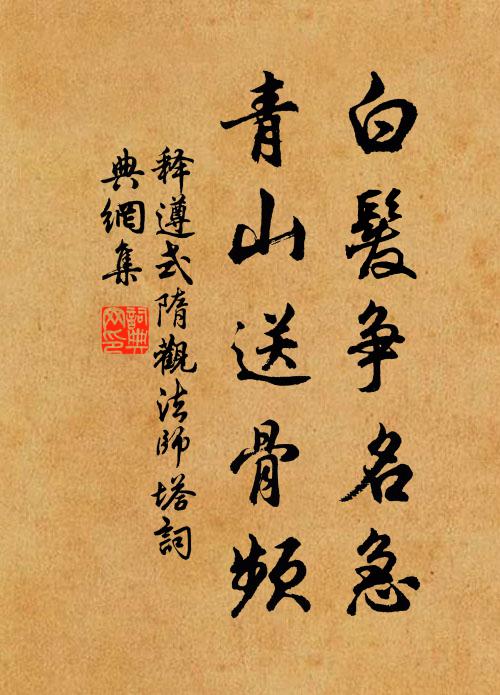 白髮争名急
青山送骨頻
释遵式隋觀法師塔詞
典網集
詞典網印